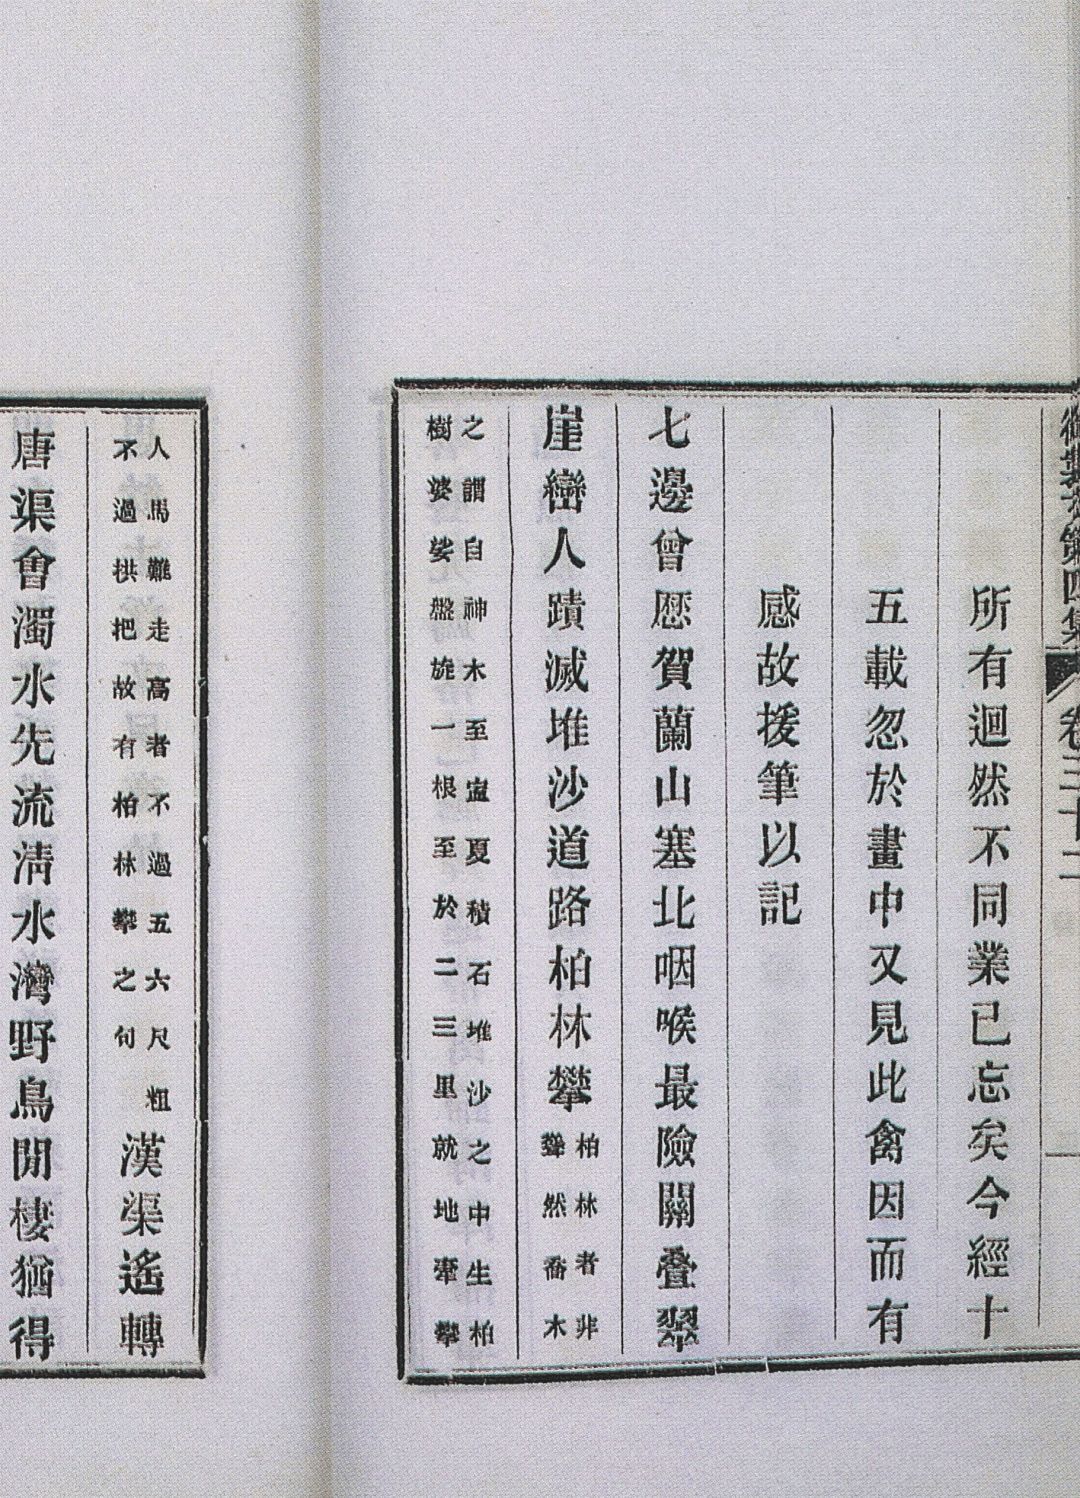 御製文第四集 卷三十二
所有迴然不同業已忘矣今經十
五載忽於畫中又見此禽因而有
感故援筆以記
七邊曾歷賀蘭山塞北咽喉最險關叠翠
崖巒人蹟滅堆沙道路柏林攀
柏林者非
聳然喬木
之謂自神木至寍夏積石堆沙之中生柏
樹婆娑盤旋一根至於二三里就地牽攀
人馬難走高者不過五六尺粗
不過拱把故有柏林攀之句
漢渠遙轉
唐渠會濁水先流清水灣野鳥閒棲猶得